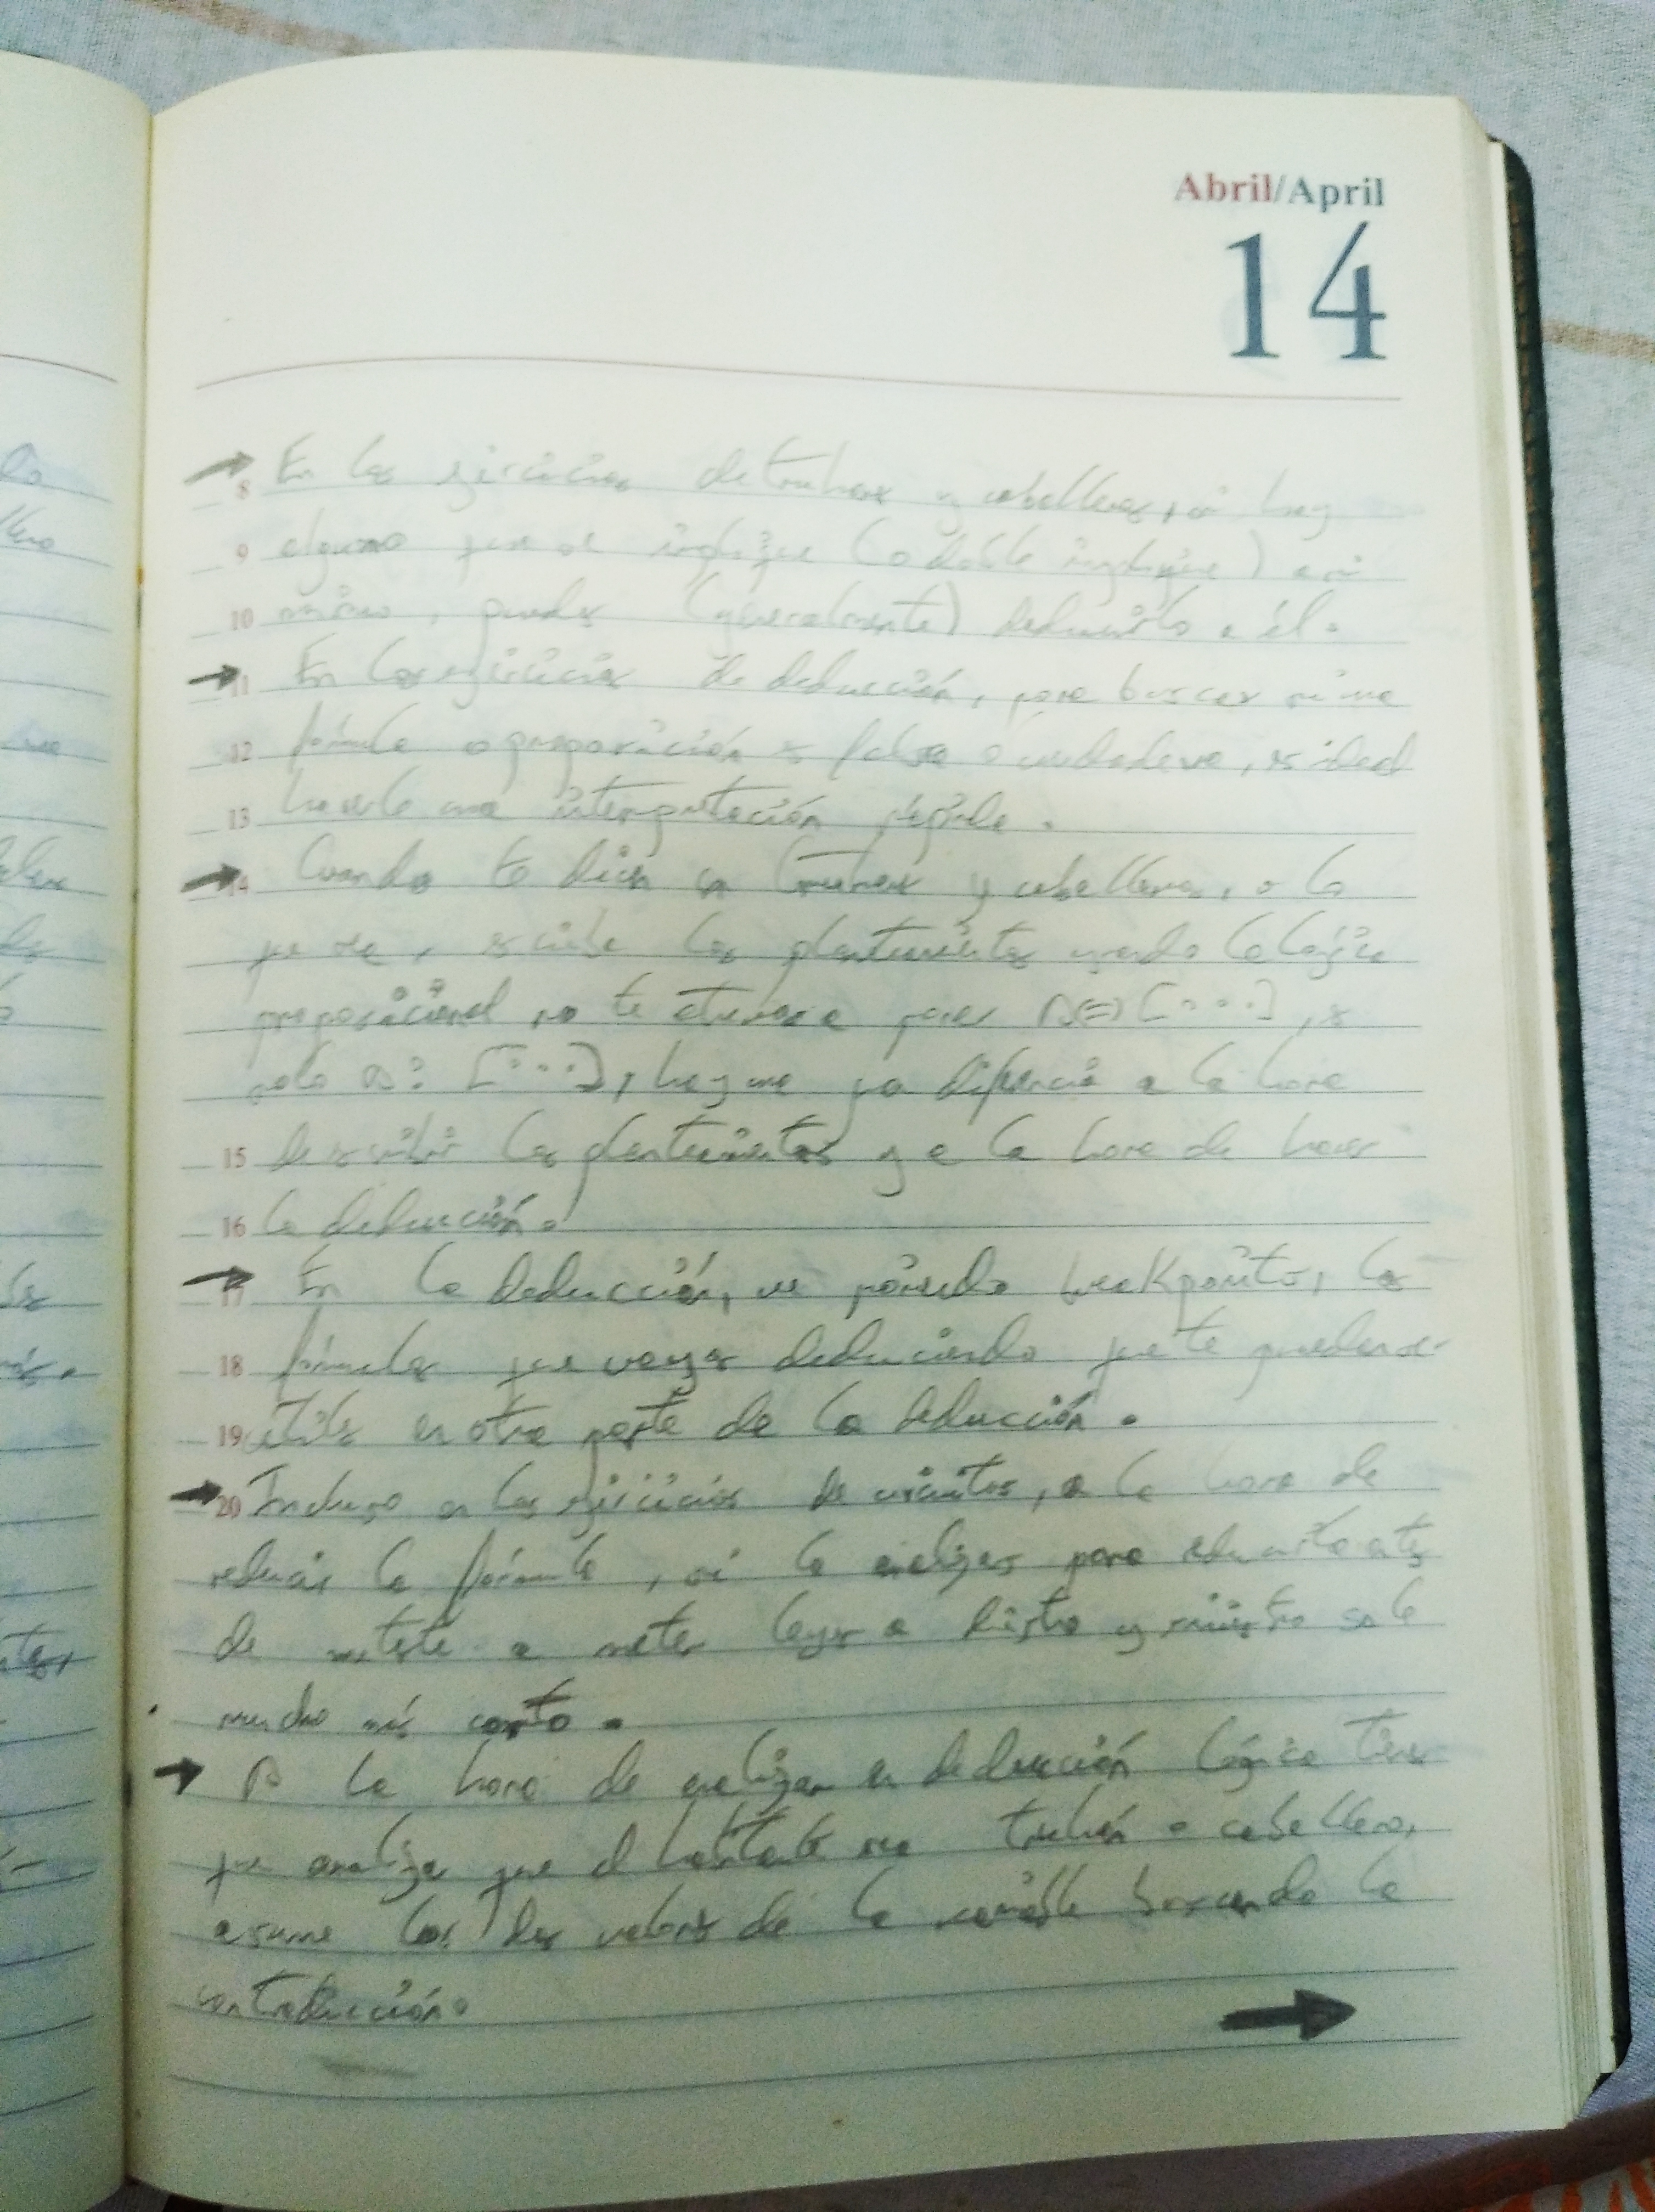 Abril/April
14
→ En los ejercicios de truhanes y caballeros, si hay
8
9 alguno que se implique (o doble implique) a si
10 mismo, puedes (generalmente) deducirlo a él.
→ 11 En los ejercicios de deducción, para buscar si una
12 fórmula o proposición es falsa o verdadera, es ideal
13 hacerle una interpretación rápida.
→ 14 Cuando te dicen en truhanes y caballeros, o lo
que sea, escribe los planteamientos usando la lógica
proposicional no te atrevas a poner A⇔[...], es
solo A: [...], hay una gran diferencia a la hora
15 de escribir los planteamientos y a la hora de hacer
16 la deducción.
→ 17 En la deducción, ve poniendo breakpoints, las
18 fórmulas que vayas deduciendo que te puedan ser
19 útiles en otra parte de la deducción.
→ 20 Incluso en los ejercicios de circuitos, a la hora de
reducir la fórmula, si la analizas para reducirla antes
de meterte a meter leyes a diestra y siniestra sale
mucho más corto.
→ A la hora de analizar en deducción lógica tienes
que analizar que el habitante sea truhán o caballero,
asume los dos valores de la variable buscando la
contradicción.
→